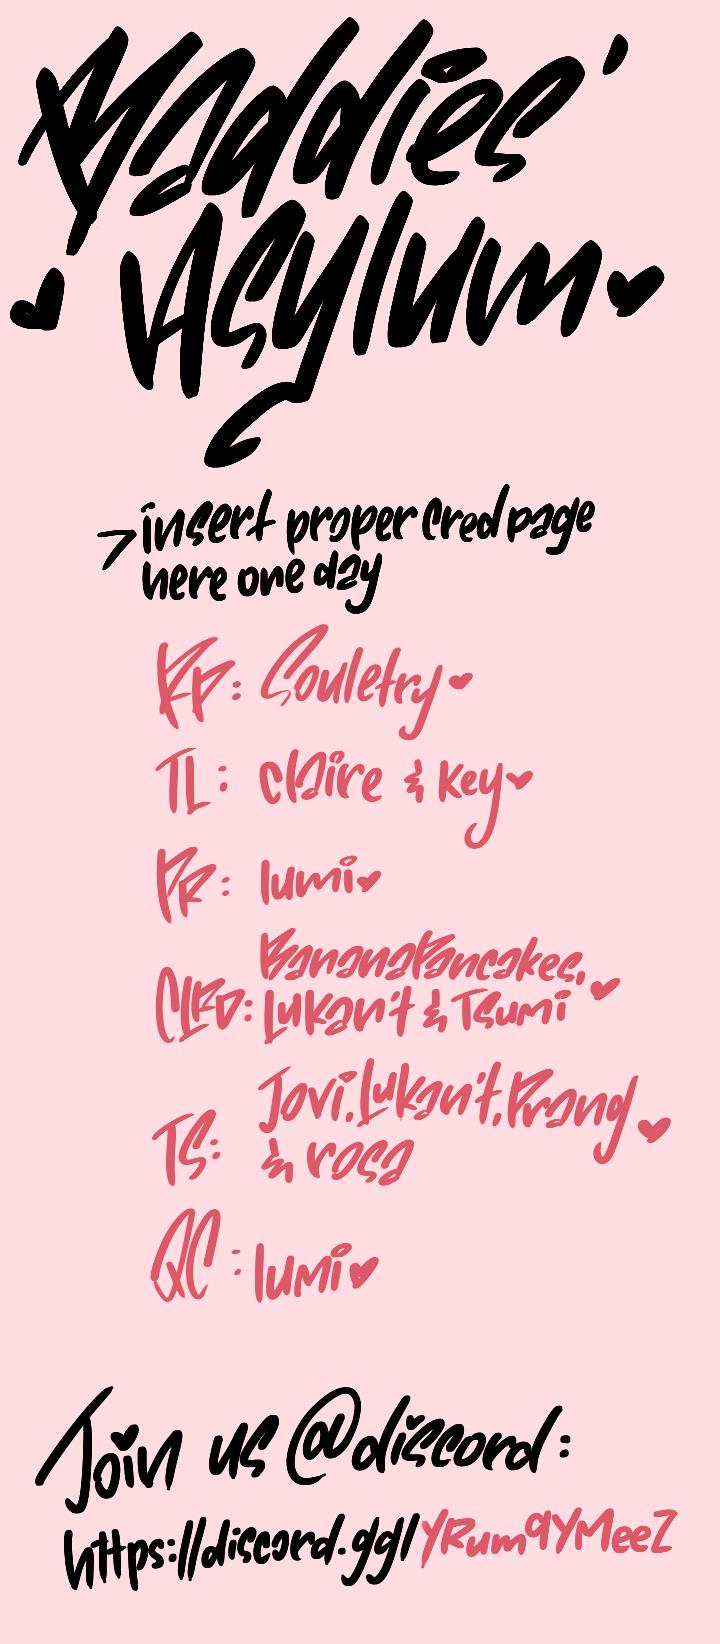 Baddies'
Asylum
insert proper cred page
here one day
RP: Souletry
TL: claire & key
PR: lumi
BananaPancakes,
CLRD: Lukan't & Tsumi
Jovi, Lukan't, Prang
TS: & rosa
QC: lumi
Join us @discord:
https://discord.gg/YRumqYMeeZ